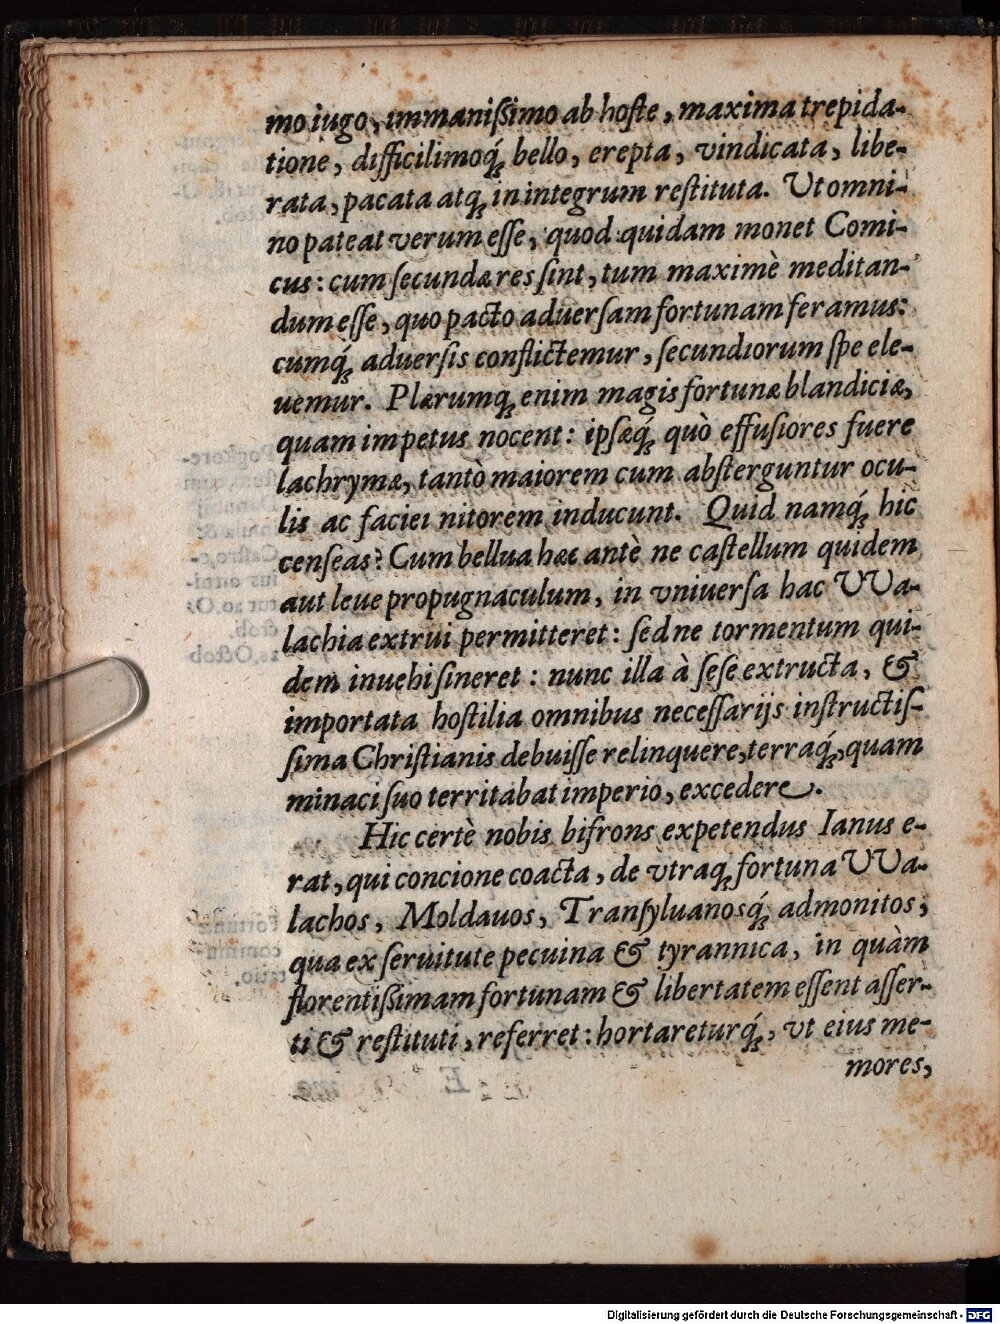 mo iugo, immanißimo ab hoſte, maxima trepida-
tione, difficilimoq́; bello, erepta, vindicata, libe-
rata, pacata atq; in integrum reſtituta. Ut omni-
no pateat verum eſſe, quod quidam monet Comi-
cus: cum ſecundæ res ſint, tum maximè meditan-
dum eſſe, quo pacto aduerſam fortunam feramus:
cumq́; aduerſis conflictemur, ſecundiorum ſpe ele-
uemur. Plærumq; enim magis fortunæ blandiciæ,
quam impetus nocent: ipſæq́; quò effuſiores fuere
lachrymæ, tantò maiorem cum abſterguntur ocu-
lis ac faciei nitorem inducunt. Quid namq́; hic
cenſeas? Cum bellua hæc antè ne caſtellum quidem
aut leue propugnaculum, in vniuerſa hac VVa-
lachia extrui permitteret: ſed ne tormentum qui-
dem inuehi ſineret: nunc illa à ſeſe extructa, &
importata hoſtilia omnibus neceſſarijs inſtructiſ-
ſima Chriſtianis debuiſſe relinquere, terraq́;, quam
minaci ſuo territabat imperio, excedere.
Hic certè nobis bifrons expetendus Ianus e-
rat, qui concione coacta, de vtraq; fortuna VVa-
lachos, Moldauos, Tranſyluanosq́; admonitos,
qua ex ſeruitute pecuina & tyrannica, in quàm
florentißimam fortunam & libertatem eſſent aſſer-
ti & reſtituti, referret: hortareturq́;, vt eius me-
mores,
Digitalisierung gefördert durch die Deutsche Forschungsgemeinschaft - DFG